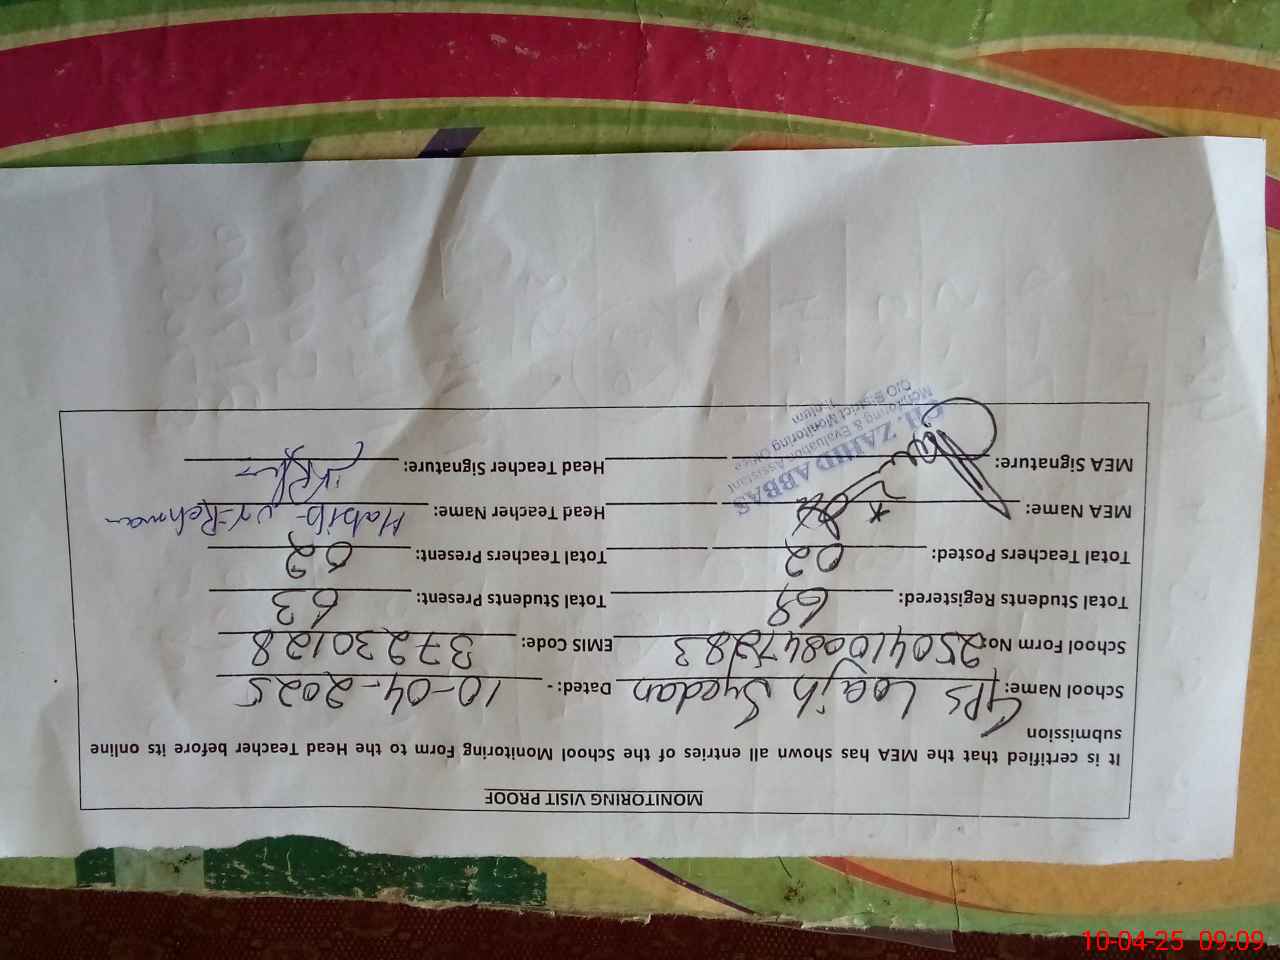 MONITORING VISIT PROOF
It is certified that the MEA has shown all entries of the School Monitoring Form to the Head Teacher before its online
submission
School Name: GPS Loajh Syedan Dated: - 10-04-2025
School Form No: 250410084728 3 EMIS Code: 37230128
Total Students Registered: 69 Total Students Present: 63
Total Teachers Posted: 02 Total Teachers Present: 02
MEA Name: Head Teacher Name: Habib-ur-Rehman
MEA Signature: Head Teacher Signature:
CH. ZAHID ABBAS
Monitoring & Evaluation Assistant
O/O District Monitoring Office
Jhelum
10-04-25 09:09